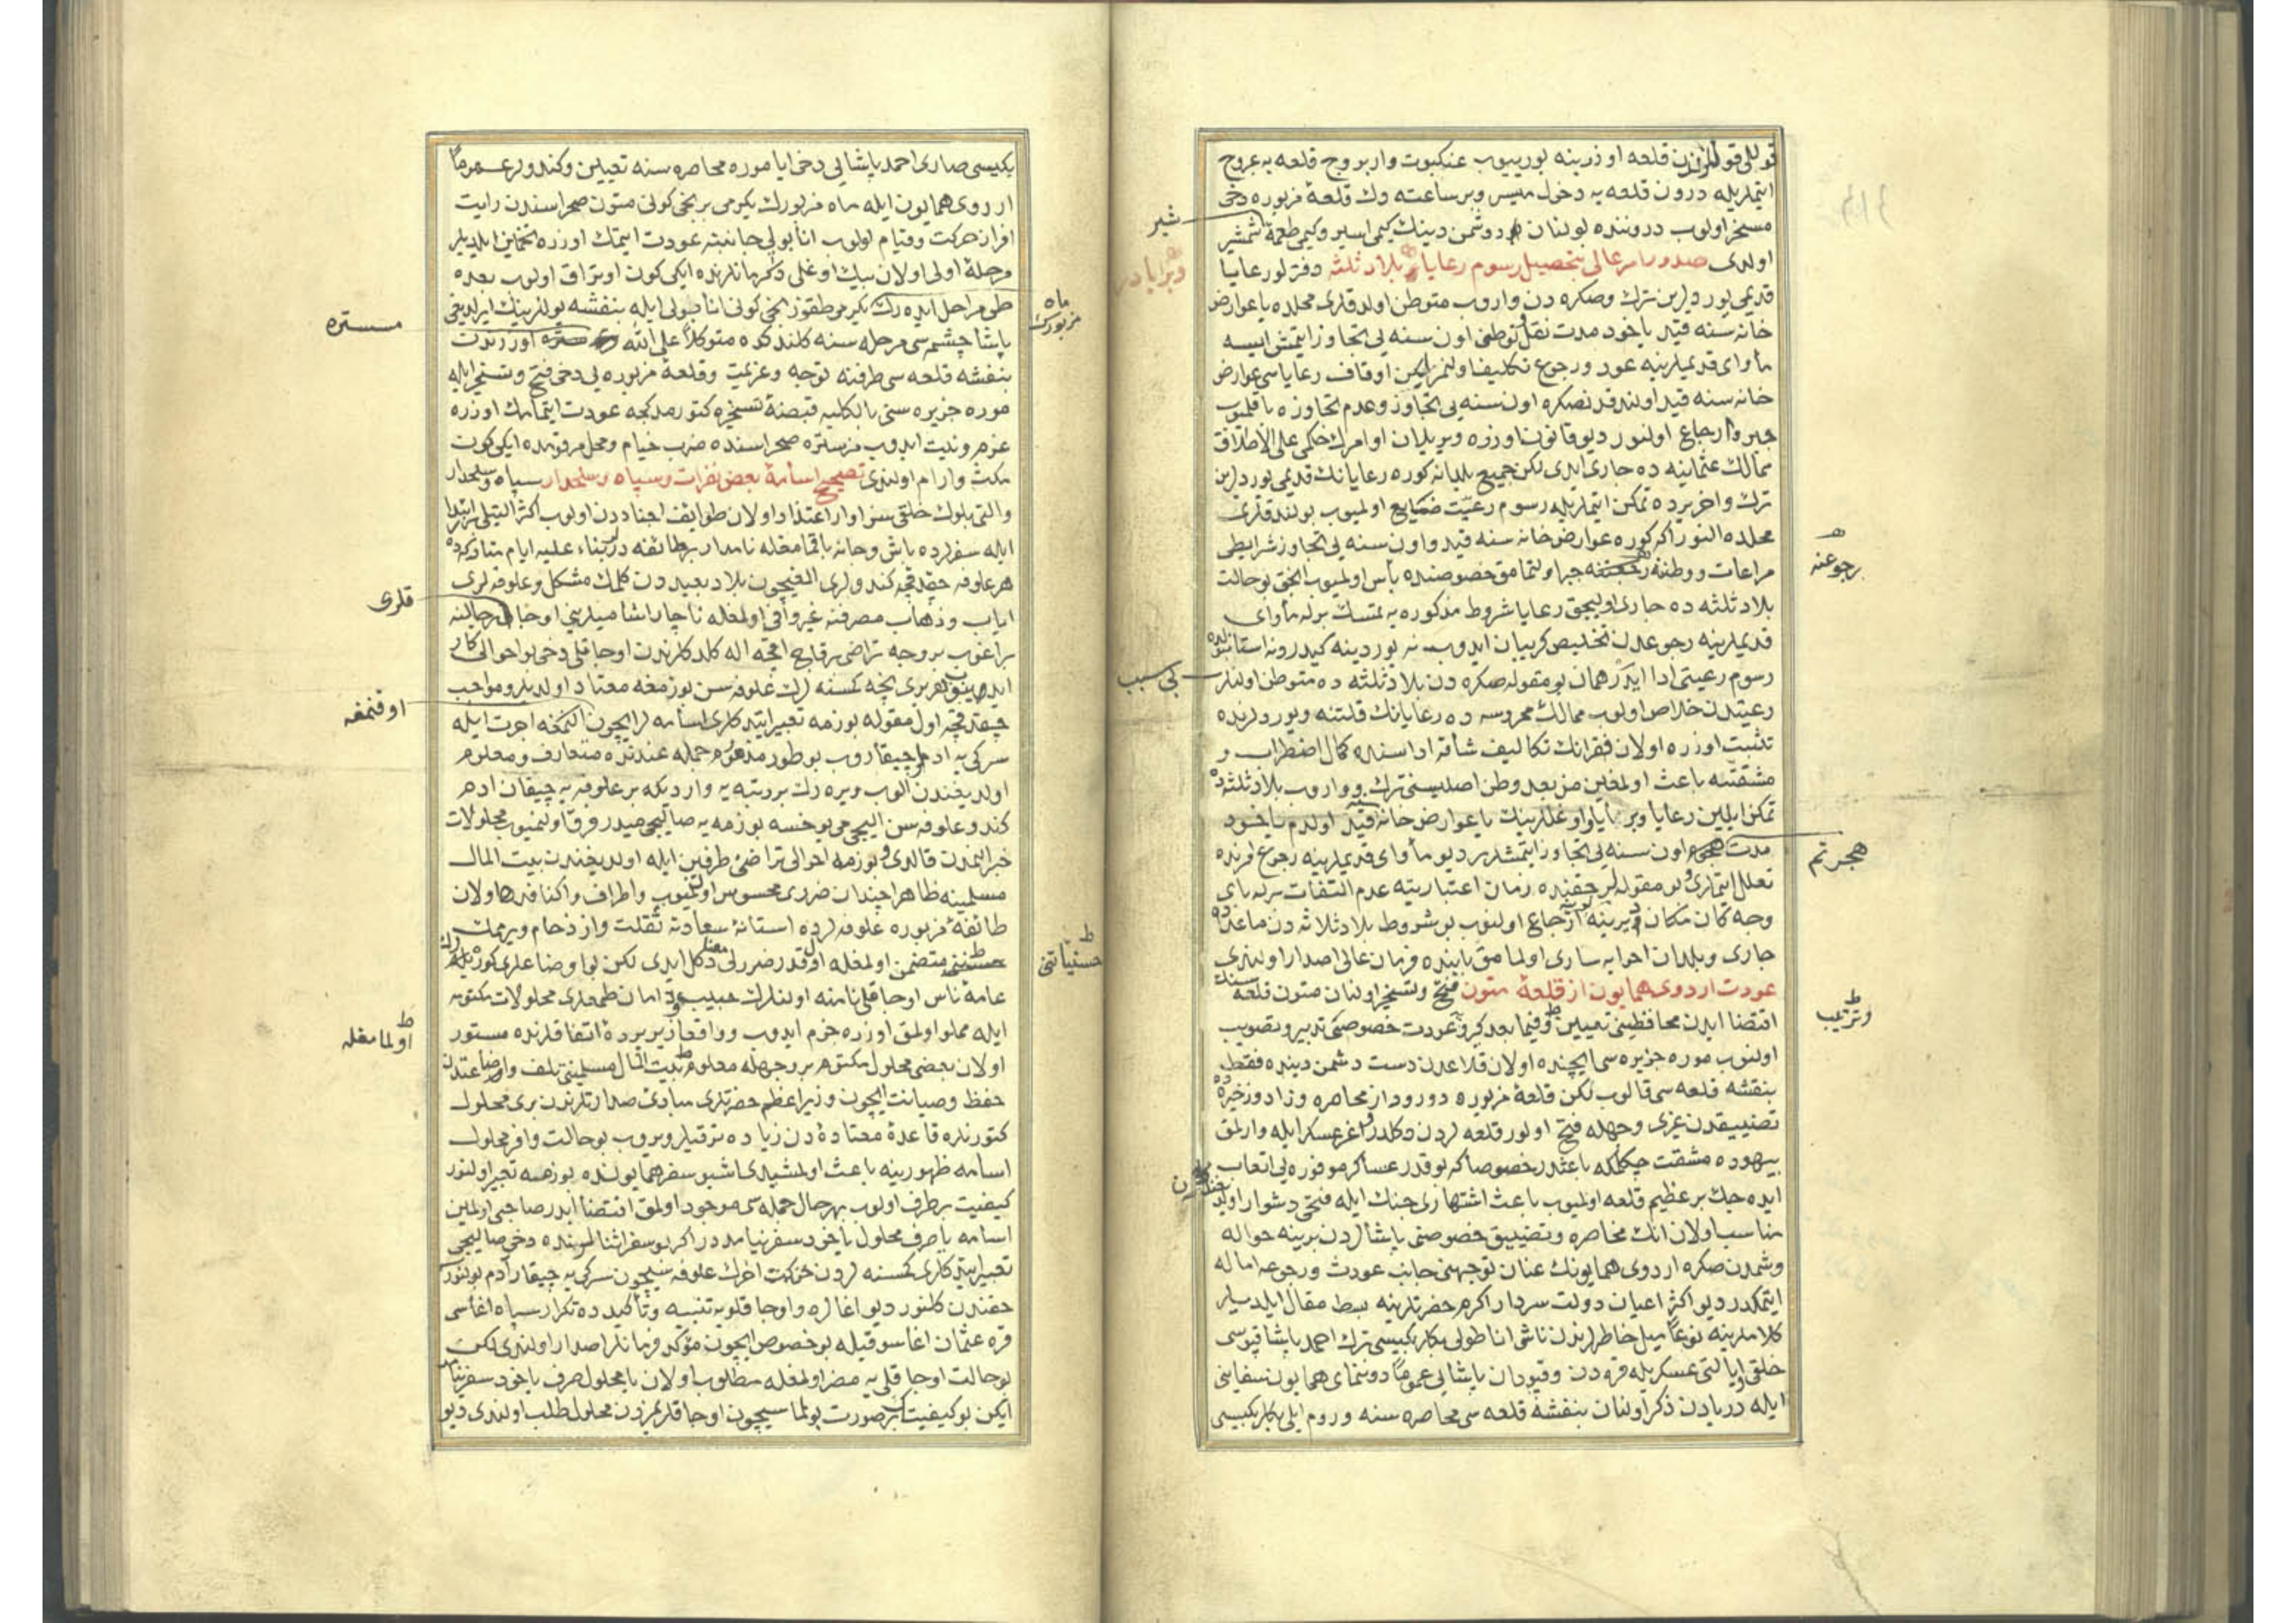 قوللی قوللرندن قلعه اوزرینه یوریوب عنکبوت وار بروج قلعه یه عروج
ایتملریله درون قلعه یه دخول میسر وبر ساعته دك قلعهٔ مزبوره دخی
مسخر اولوب دروننده بولنان دشمن دینك کیمی اسیر وکیمی طعمهٔ شمشیر
اولدی صدور امر عالی بتحصیل رسوم رعایا بلاد ثلثه دفترلو رعایا
قدیمی یوردلرین ترك وصکره دن واروب متوطن اولدقلری محلده یا عوارض
خانه سنه قید یاخود مدت نقل وتوطنی اون سنه یی تجاوز ایتمش ایسه
مأوای قدیملرینه عود ورجوع تکلیف اولنمز ایکن اوقاف رعایاسی عوارض
خانه سنه قید اولندقدنصکره اون سنه یی تجاوز وعدم تجاوزه باقلمیوب
جبر وارجاع اولنور دیو قانون اوزره ویریلان اوامرك حکمی علی الاطلاق
ممالك عثمانیه ده جاری ایدی لکن جمیع بلدانه کوره رعایانك قدیمی یوردلرین
ترك واخر یرده تمکن ایتملریله رسوم رعیت ضایع اولمیوب بولندقلری
محلده النور اکه کوره عوارض خانه سنه قید واون سنه یی تجاوز شرایطی
مراعات ووطننه جبر اولنمامق خصوصنده بأس اولمیوب انجق بوحالت
بلاد ثلثه ده جاری اولیجق رعایا شروط مذکوره یه تمسك برله مأوای
قدیملرینه رجوعدن تخلیص کریبان ایدوب نه یوردینه کیدر ونه استانبولده
رسوم رعیتی ادا ایدر همان بومقوله صکره دن بلاد ثلثه ده متوطن اولنلر
رعیتدن خلاص اولوب ممالك محروسه ده رعایانك قلتنه ویوردلرنده
تثبت اوزره اولان فقرانك تکالیف شاقه اداسنده کمال اضطراب و
مشقتنه باعث اولمغین من بعد وطن اصلیسنی ترك وواروب بلاد ثلثه ده
تمکن ایلین رعایا وبرایا واوغللرینك یا عوارض خانه سنه قید اولدم یاخود
مدت اون سنه یی تجاوز ایتمشدر دیو مأوای قدیملرینه رجوع امرنده
تعلل ایتملری وبومقوله لر حقنده زمان اعتبارینه عدم التفات برله بأی
وجه کان مکان دیرینه لرینه ارجاع اولنوب بوشروط بلاد ثلاثه دن ماعداده
جاری وبلدان اجرایه ساری اولمامق بابنده فرمان عالی اصدار اولندی
عودت اردوی همایون از قلعهٔ متون فتح وتسخیر اولنان متون قلعه سنك
اقتضا ایدن محافظینی تعیین وفیما بعد کیرو عودت خصوصنی تدبیر وتصویب
اولنوب موره جزیره سی ایچنده اولان قلاعدن دست دشمن دینده فقط
بنفشه قلعه سی قالوب لکن قلعهٔ مزبوره دورودراز محاصره وزاد وذخیره ده
تضییقدن غیری وجهله فتح اولور قلعه لردن دکلدر واغر عسکر ایله وارلمق
بیهوده مشقت چکمکه باعثدر خصوصا که بوقدر عساکر موفوره یی اتعاب
ایده جك بر عظیم قلعه اولمیوب باعث اشتهاری جنك ایله فتحی دشوار اولیغیدر
مناسب اولان انك محاصره وتضییق خصوصنی پاشالردن برینه حواله
وشمدن صکره اردوی همایونك عنان توجهنی جانب عودت ورجوعه اماله
ایتمکدر دیو اکثر اعیان دولت سردار اکرم حضرتلرینه بسط مقال ایلدیلر
کلاملرینه نوعا میل خاطرلرندن ناشی اناطولی بکلربکیسی ترك احمد پاشا قپوسی
خلقی وایالتی عسکریله قره دن وقپودان پاشایی عموما دوننمای همایون سفاینی
ایله دریادن ذکر اولنان بنفشه قلعه سی محاصره سنه وروم ایلی بکلربکیسی
شیر
وبرایا در
رجوعنه
کبی سبب
هجرتم
وترتیب
بکیسی صاری احمد پاشایی دخی ایا موره محاصره سنه تعیین وکندولر عموما
اردوی همایون ایله ماه مزبورك یکرمی برنجی کونی متون صحراسندن رایت
افراز حرکت وقیام اولوب انابولی جانبنه عودت ایتمك اوزره تخمین ایلدیلر
مرحلهٔ اولی اولان بیك اوغلی دکرمانلرنده ایکی کون اوتراق اولوب بعده
طی مراحل ایده رك یکرمی طقوزنجی کونی انابولی ایله بنفشه یوللرینك ایرلدیغی
پاشا چشمه سی مرحله سنه کلندکده متوکلا علی الله اوزرندن
بنفشه قلعه سی طرفنه توجه وعزیمت وقلعهٔ مزبوره یی دخی فتح وتسخیر ایله
موره جزیره سنی بالکلیه قبضهٔ تسخیره کتورمدکجه عودت ایتمامك اوزره
عزم ونیت ایدوب مزستره صحراسنده ضرب خیام ومحل مرقومده ایکی کون
مکث وارام اولندی تصحیح اسامهٔ بعض نفرات وسپاه وسلحدار سپاه وسلحدار
والتی بلوك خلقی سزاوار اعتداد اولان طوایف اجناددن اولوب اکثر التیلی
ایله سفرلرده باش وجانه باقمامغله نامدار بر طائفه در بناء علیه ایام متارکه ده
هر علوفه چیقدقجه کندولری القیچون بلاد بعیده دن کلمك مشکل وعلوفه لری
ایاب وذهاب مصرفنه غیر وافی اولمغله ناچار اسامیلرینی اوجاق رجالنه
براغوب بر وجه تراضی برقاچ اقچه اله کلدکلرندن اوجاقلی دخی بو احوالی کار
ایدینوب هر بری نیجه کسنه لرك علوفه سن بوزمغه معتاد اولدیلر ومواجب
چیقدقچه اول مقوله بوزمه تعبیر ایتدکلری اسامه لر ایچون اجرت ایله
سرکی یه ادملر چیقاروب بو طور مذموم جمله عندنده متعارف ومعلوم
اولدیغندن الوب ویره رك بر رتبه یه واردیکه بر علوفه یه چیقان ادم
کندو علوفه سن الیجی می یوخسه بوزمه یه صالیجی میدر فرق اولنمیوب محلولات
خبر النمدن قالدی وبوزمه احوالی تراضیٔ طرفین ایله اولدیغندن بیت المال
مسلمینه ظاهرا چندان ضرری محسوس اولنمیوب واطراف واکنافده اولان
طائفهٔ مزبوره علوفه لرده استانهٔ سعادته ثقلت وازدحام ویرمك
متضمن اولمغله اولقدر ضررلی دکل ایدی لکن بو اوضاعلری کوره رك
عامهٔ ناس اوجاقلی نامنه اولنلرك جیب ودامان طمعلری محلولات مکتومه
ایله مملو اولمق اوزره جزم ایدوب وواقعا زیر پردهٔ اتفاقلرنده مستور
اولان بعضی محلول مکتوم هر بر وجهله معلوم وبیت المال مسلمینی تلف واضاعتدن
حفظ وصیانت ایچون وزیر اعظم حضرتلری مبادیٔ صدارتلرندن بری محلول
کتورنلره قاعدهٔ معتاده دن زیاده ترقیلر ویروب بوحالت وافر محلول
اسامه ظهورینه باعث اولمشیدی اشبو سفر همایونده بوزمه تعبیر اولنور
کیفیت برطرف اولوب بهرحال جمله سی موجود اولمق اقتضا ایدر صاحبی اولمین
اسامه یا صرف محلول یاخود سفره نیامددر اکر بو سفر اثنالرنده دخی صالیجی
تعبیر ایتدکلری کسنه لردن حرکت اخرك علوفه سیچون سرکی یه چیقار ادم بولنور
حقندن کلنور دیو اغالره واوجاقلویه تنبیه وتأکید ده تکرار سپاه اغاسی
قره عثمان اغا سوقیله بو خصوص ایچون مؤکد فرمانلر اصدار اولندی لکن
بوحالت اوجاقلی یه مضر اولمغله مطلوب اولان یا محلول صرف یاخود سفره نیامد
ایکن بو کیفیت بر صورت بولماسیچون اوجاقلریمزدن محلول طلب اولندی دیو
ماه مزبورك
مستره
قلری
اوقنمغه
حسنیاتنی
اولمامغله